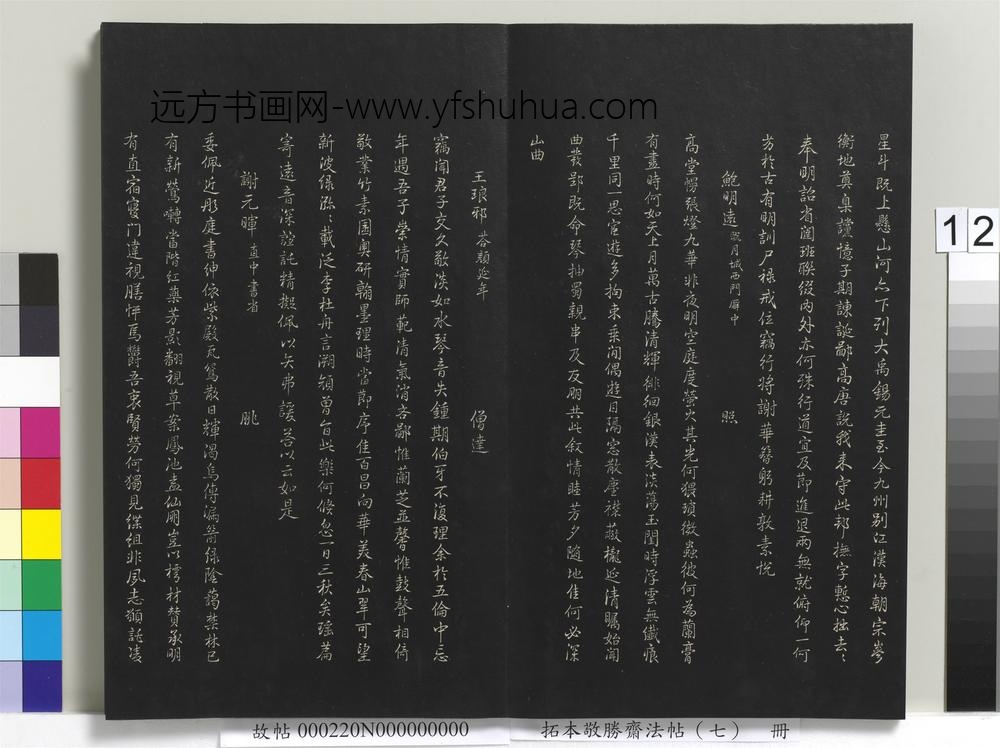 远方书画网-www.yfshuhua.com
星斗既上懸山河亦下列大禹錫元圭至今九州别江漢海朝宗岑
衡地奠奧讀憶子期諫誕鄙高唐説我来守此邦撫字慙心拙去〻
奉明詔省闥班聯綴内外亦何殊行道宜及節進退兩無就俯仰一何
劣於古有明訓尸禄戒位竊行將謝華簪躬耕敦素悦
鮑明遠 翫月城西門廨中 照
高堂愣張燈九華非夜明空庭度螢火其光何猥瑣微蟲彼何為蘭膏
有盡時何如天上月萬古騰清輝徘徊銀漢表淡蕩玉閨時浮雲無纖痕
千里同一思宦遊多拘束乘閒偶遊目隔窓散塵襟蔽櫳延清矚始聞
曲裁郢既命琴抽蜀親串及友朋共此叙情睦芳夕隨地佳何必深
山曲
王琅邪 荅顏延年 僧達
竊聞君子交久敬淡如水琴音失鍾期伯牙不復理余於五倫中忘
年遇吾子崇情實師範清氣消吝鄙惟蘭芝並馨惟鼓聲相倚
敬業竹素園奥研翰墨理時當節序佳百昌向華美春山翠可望
新波緑瀰〻載泛李杜舟言溯潁曽旨此樂何倏忽一日三秋矣瑶篇
寄遠音深誼託精擬佩以矢弗諼荅以云如是
謝元暉 直中書省 朓
委佩近彤庭書紳依紫殿瓦鴛散日輝渴烏傳漏箭緑隂藹禁林已
有新鶯囀當階紅藥芳影翻視草案鳳池盖仙厠豈以樗材贊承明
有直宿寢門達視膳怦焉欝吾衷賢劳何獨見緤組非夙志願託凌
12
故帖 000220N000000000
拓本敬勝齋法帖（七） 冊